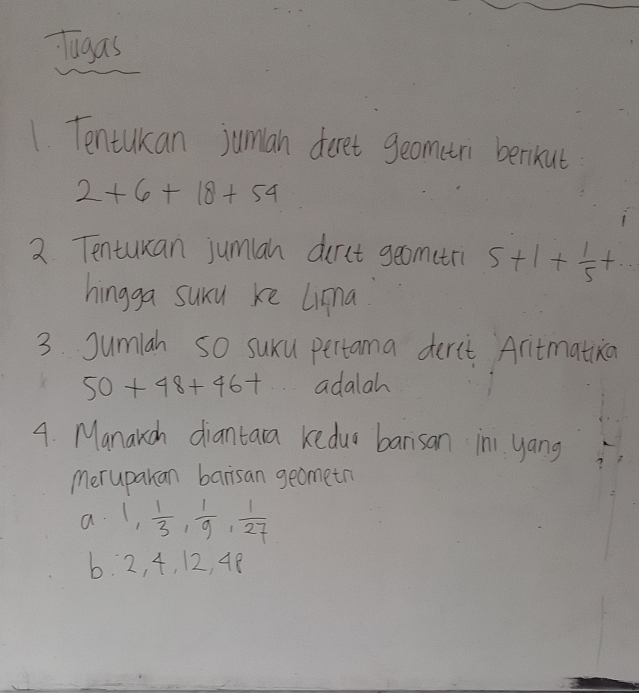 Tugas
1. Tentukan jumlah deret geometri berikut :
2 + 6 + 18 + 54
2. Tentukan jumlah deret geometri 5 + 1 + 1/5 + ...
hingga suku ke Lima
3. Jumlah 50 suku pertama deret Aritmatika
50 + 48 + 46 + ... adalah
4. Manakah diantara kedua barisan ini yang
merupakan barisan geometri
a. 1, 1/3, 1/9, 1/27
b. 2, 4, 12, 48